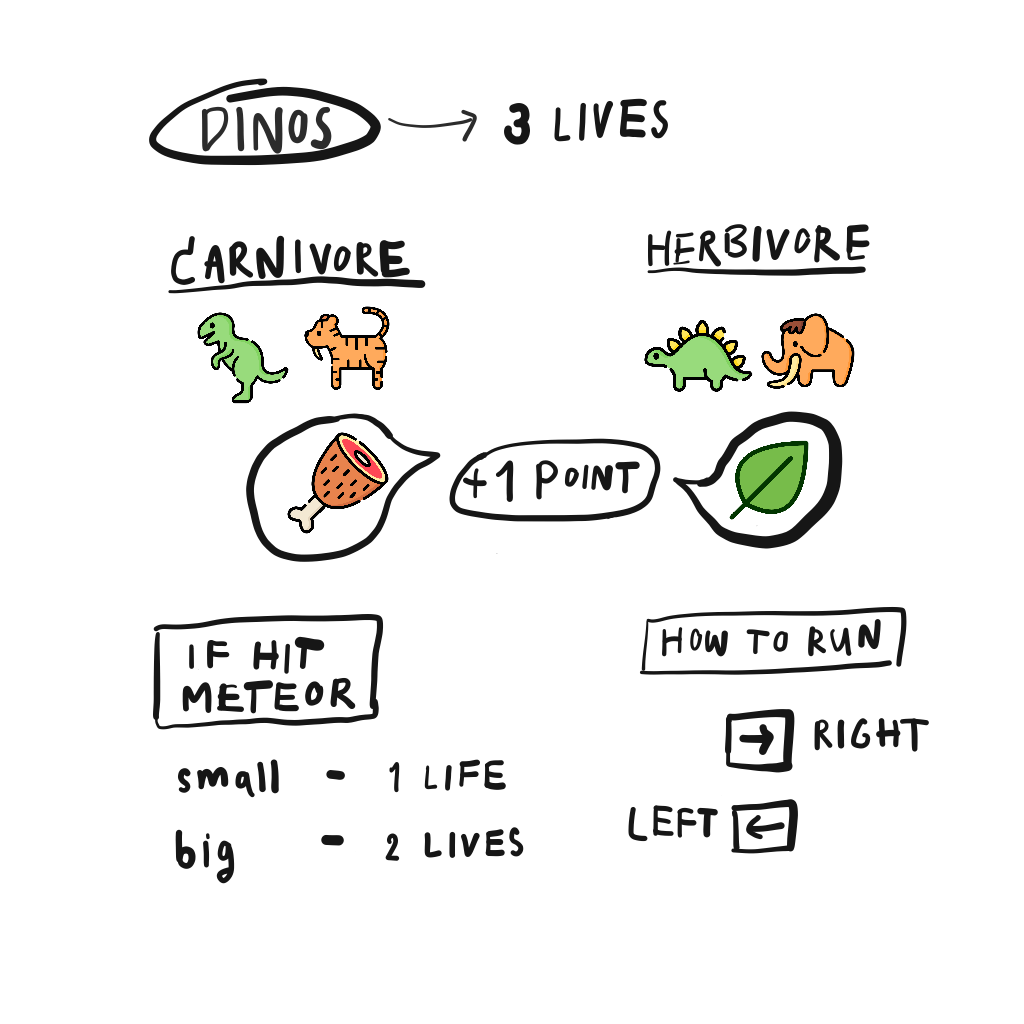 DINOS → 3 LIVES
CARNIVORE
HERBIVORE
+1 POINT
IF HIT
METEOR
small - 1 LIFE
big - 2 LIVES
HOW TO RUN
→ RIGHT
LEFT ←